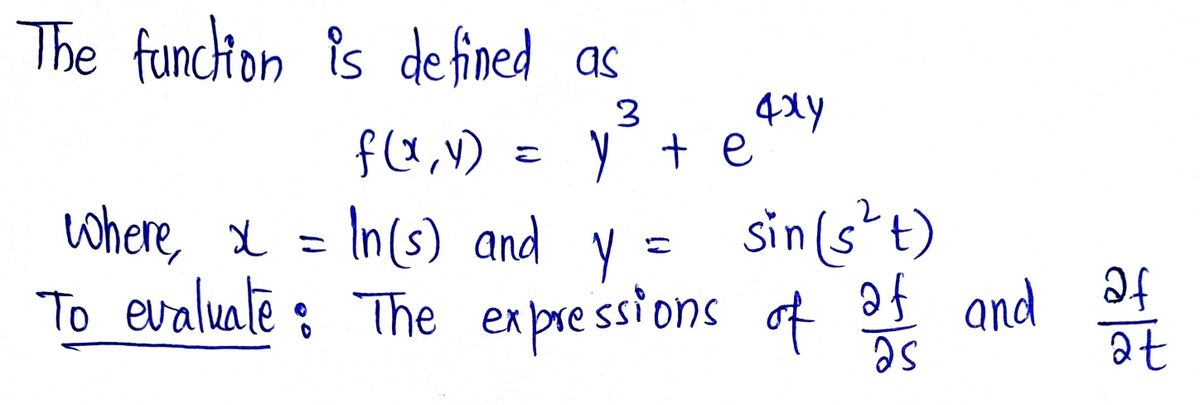 The function is defined as
f(x,y) = y³ + e^{4xy}
where, x = ln(s) and y = sin(s²t)
To evaluate : The expressions of ∂f/∂s and ∂f/∂t